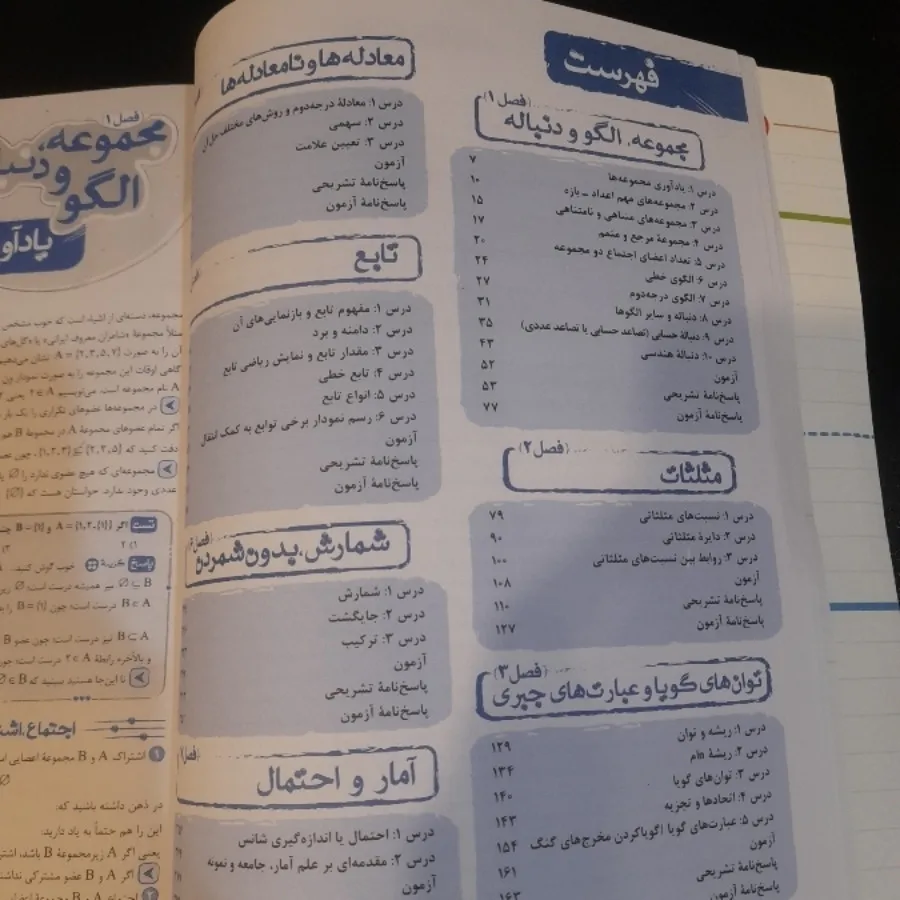 فهرست
(فصل ۱)
مجموعه، الگو و دنباله
درس ۱: یادآوری مجموعه‌ها ۷
درس ۲: مجموعه‌های مهم اعداد ـ بازه ۱۰
درس ۳: مجموعه‌های متناهی و نامتناهی ۱۵
درس ۴: مجموعهٔ مرجع و متمم ۱۷
درس ۵: تعداد اعضای اجتماع دو مجموعه ۲۰
درس ۶: الگوی خطی ۲۴
درس ۷: الگوی درجه‌دوم ۲۷
درس ۸: دنباله و سایر الگوها ۳۱
درس ۹: دنبالهٔ حسابی (تصاعد حسابی یا تصاعد عددی) ۳۵
درس ۱۰: دنبالهٔ هندسی ۴۳
آزمون ۵۲
پاسخ‌نامهٔ تشریحی ۵۳
پاسخ‌نامهٔ آزمون ۷۷
(فصل ۲)
مثلثات
درس ۱: نسبت‌های مثلثاتی ۷۹
درس ۲: دایرهٔ مثلثاتی ۹۰
درس ۳: روابط بین نسبت‌های مثلثاتی ۱۰۰
آزمون ۱۰۸
پاسخ‌نامهٔ تشریحی ۱۱۰
پاسخ‌نامهٔ آزمون ۱۲۷
(فصل ۳)
توان‌های گویا و عبارت‌های جبری
درس ۱: ریشه و توان ۱۲۹
درس ۲: ریشهٔ nام ۱۳۴
درس ۳: توان‌های گویا ۱۴۰
درس ۴: اتحادها و تجزیه ۱۴۳
درس ۵: عبارت‌های گویا (گویاکردن مخرج‌های گنگ ۱۵۴
آزمون ۱۶۱
پاسخ‌نامهٔ تشریحی ۱۶۳
پاسخ‌نامهٔ آزمون
معادله‌ها و نامعادله‌ها
درس ۱: معادلهٔ درجه‌دوم و روش‌های مختلف حل آن
درس ۲: سهمی
درس ۳: تعیین علامت
آزمون
پاسخ‌نامهٔ تشریحی
پاسخ‌نامهٔ آزمون
تابع
درس ۱: مفهوم تابع و بازنمایی‌های آن
درس ۲: دامنه و برد
درس ۳: مقدار تابع و نمایش ریاضی تابع
درس ۴: تابع خطی
درس ۵: انواع تابع
درس ۶: رسم نمودار برخی توابع به کمک انتقال
آزمون
پاسخ‌نامهٔ تشریحی
پاسخ‌نامهٔ آزمون
شمارش، بدون شمردن
درس ۱: شمارش
درس ۲: جایگشت
درس ۳: ترکیب
آزمون
پاسخ‌نامهٔ تشریحی
پاسخ‌نامهٔ آزمون
آمار و احتمال
درس ۱: احتمال یا اندازه‌گیری شانس
درس ۲: مقدمه‌ای بر علم آمار، جامعه و نمونه
آزمون
فصل ۱
مجموعه،
الگو و
یادآو
مجموعه، دسته‌ای از اشیاء است که خوب مشخص
مثلاً مجموعهٔ «شاعران معروف ایرانی» یا «گل‌های
آن را به صورت A = {۲,۳,۵,۷} نشان می‌دهیم
گاهی اوقات این مجموعه را به صورت نمودار ون
A نام مجموعه است. می‌نویسیم ۲∈A یعنی ۲
در مجموعه‌ها عضوهای تکراری را یک بار
اگر تمام عضوهای مجموعهٔ A در مجموعهٔ B هم
دقت کنید که
مجموعه‌ای که هیچ عضوی ندارد را ∅
عددی وجود ندارد. حواستان هست که {∅}
تست اگر
پاسخ گزینهٔ خوب گوش کنید.
∅ ⊆ B نیز همیشه درست است؛
B ∈ A درست است؛ چون B = {۱} را
B ⊂ A نیز درست است؛ چون عضو B
و بالأخره رابطهٔ ۲∈A درست است؛ چون
تا این‌جا هستید ببینید که
اجتماع، اشت
اشتراک A و B مجموعهٔ اعضایی است
در ذهن داشته باشید که:
این را هم حتماً به یاد دارید:
یعنی اگر A زیرمجموعهٔ B باشد، اشتر
اگر A و B عضو مشترکی نداشت